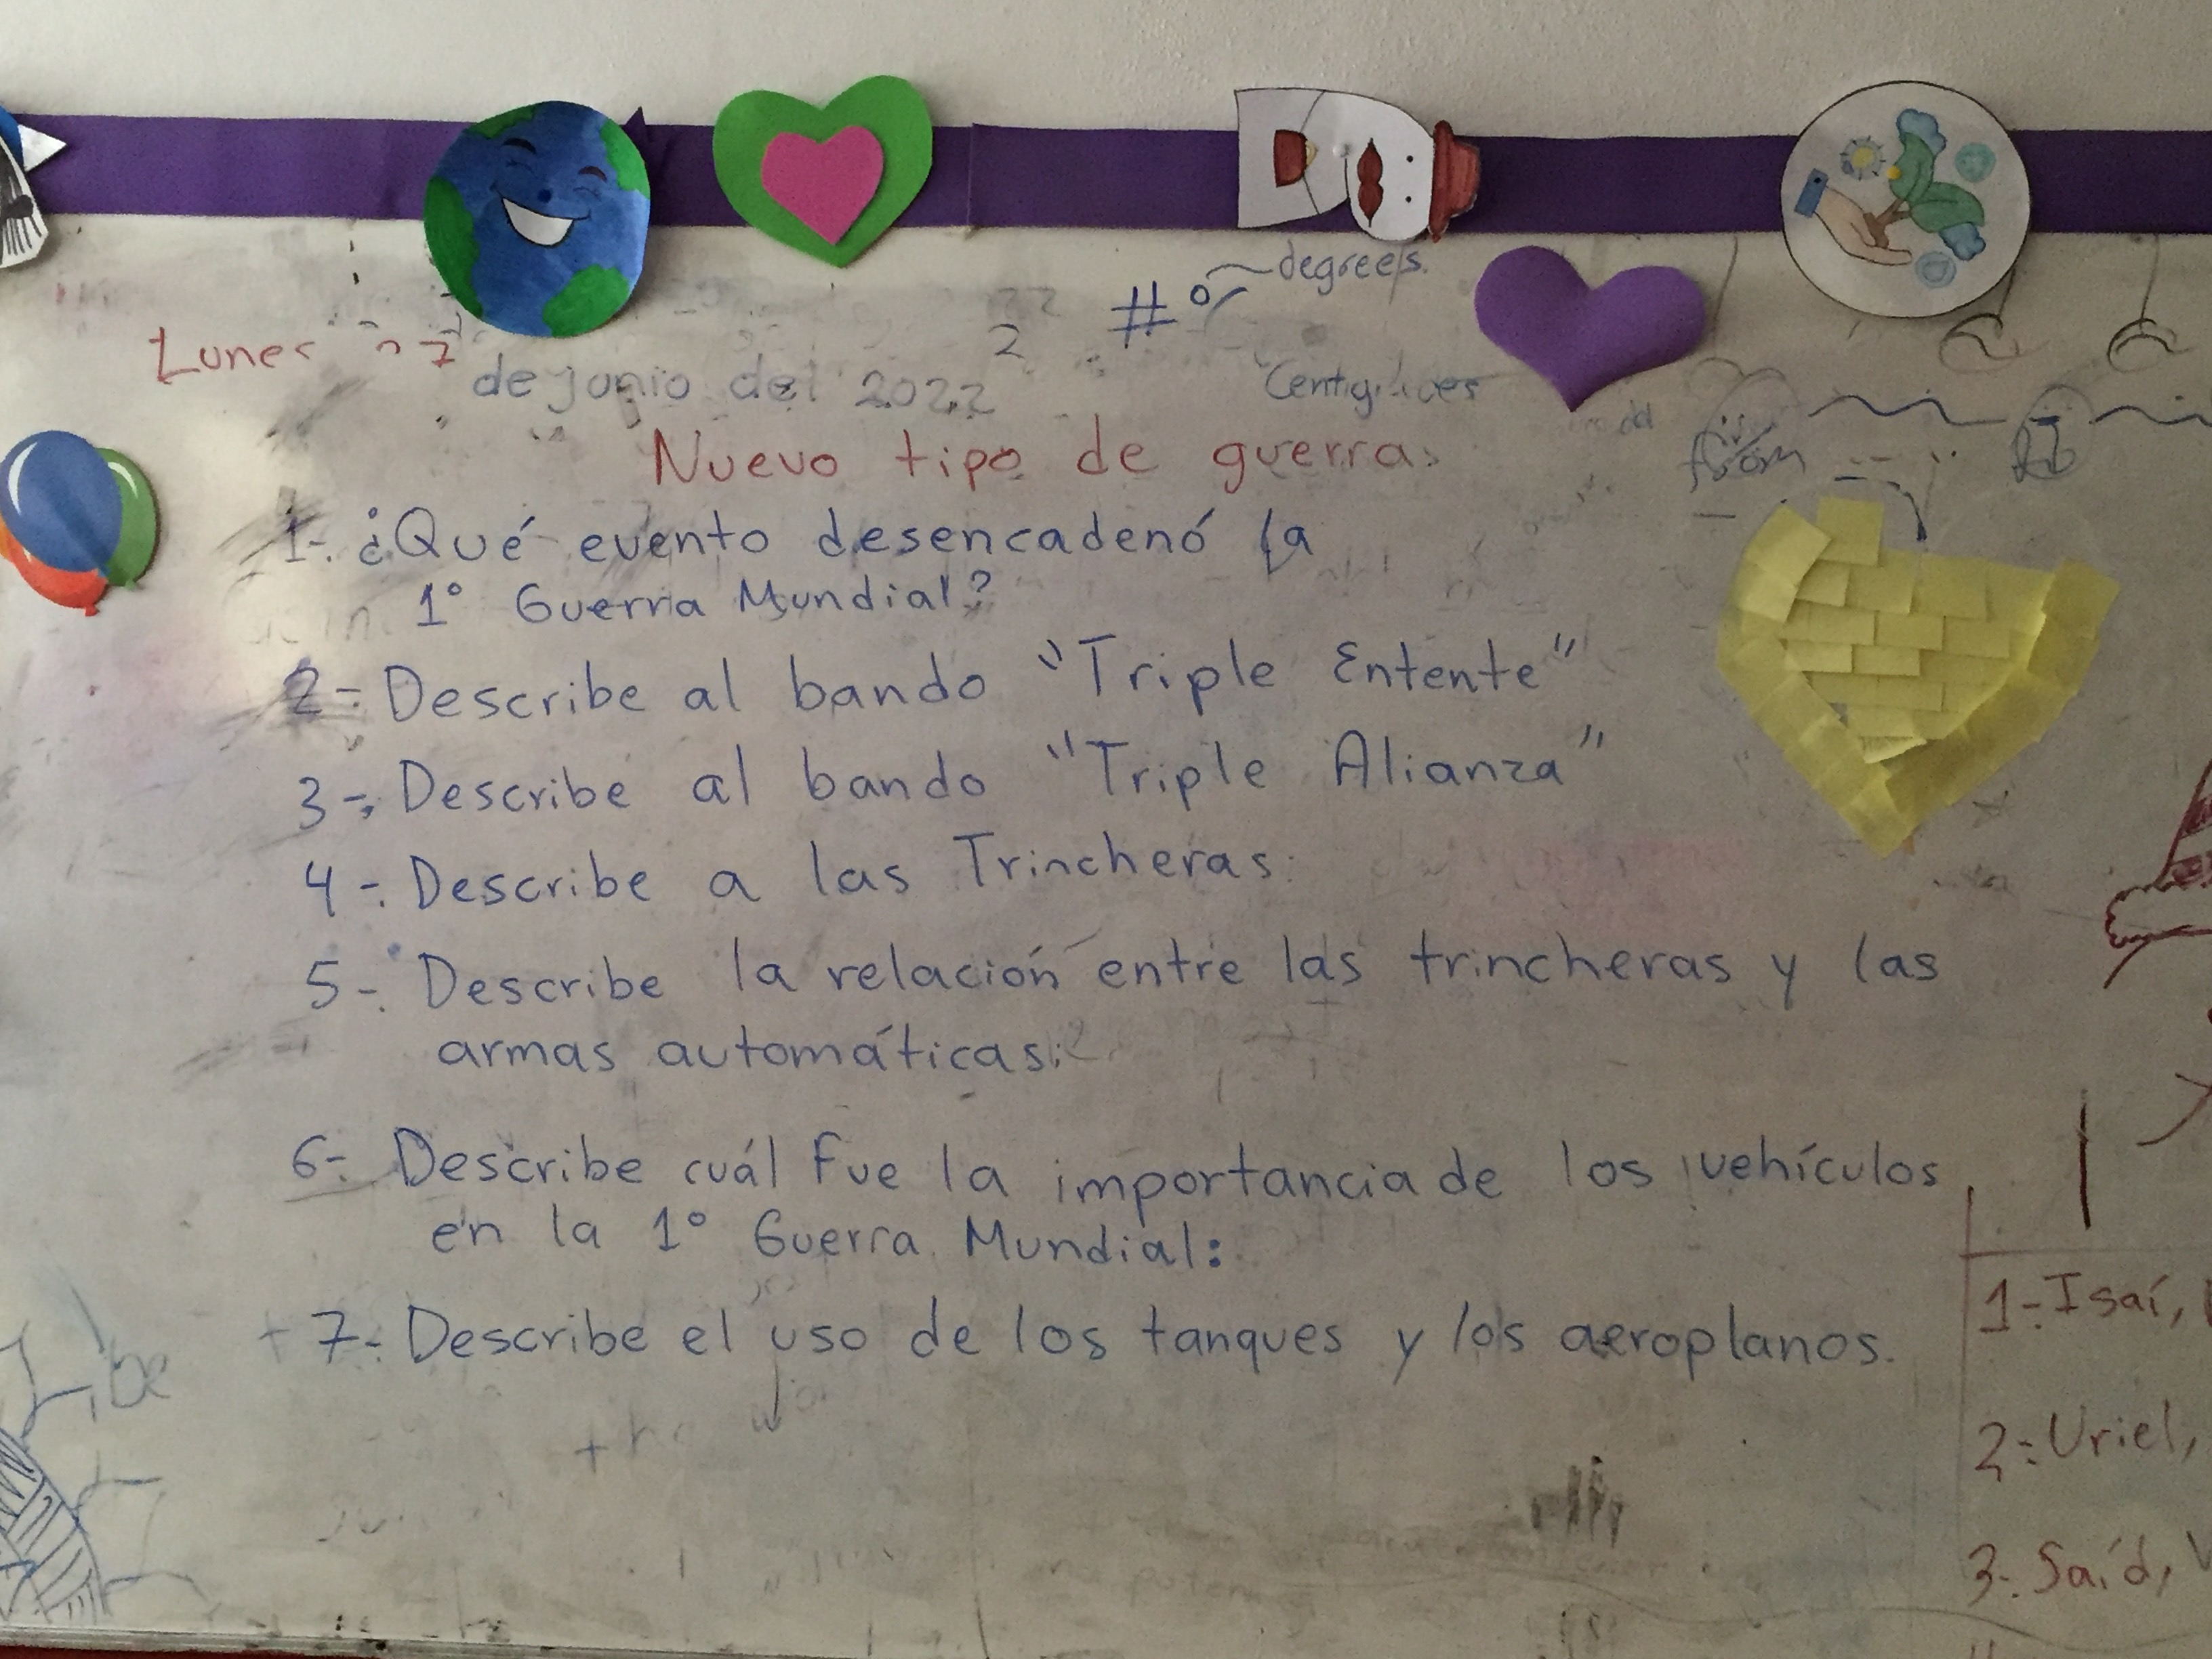 degrees.
#°
Lunes 27
2
de junio del 2022
Nuevo tipo de guerra:
from
1-. ¿Qué evento desencadenó la
1° Guerra Mundial?
2-. Describe al bando "Triple Entente"
3-. Describe al bando "Triple Alianza"
4-. Describe a las Trincheras:
5-. Describe la relación entre las trincheras y las
armas automáticas:
6-. Describe cuál fue la importancia de los vehículos
en la 1° Guerra Mundial:
7-. Describe el uso de los tanques y los aeroplanos.
1-. Isaí,
2-. Uriel,
3-. Saíd,